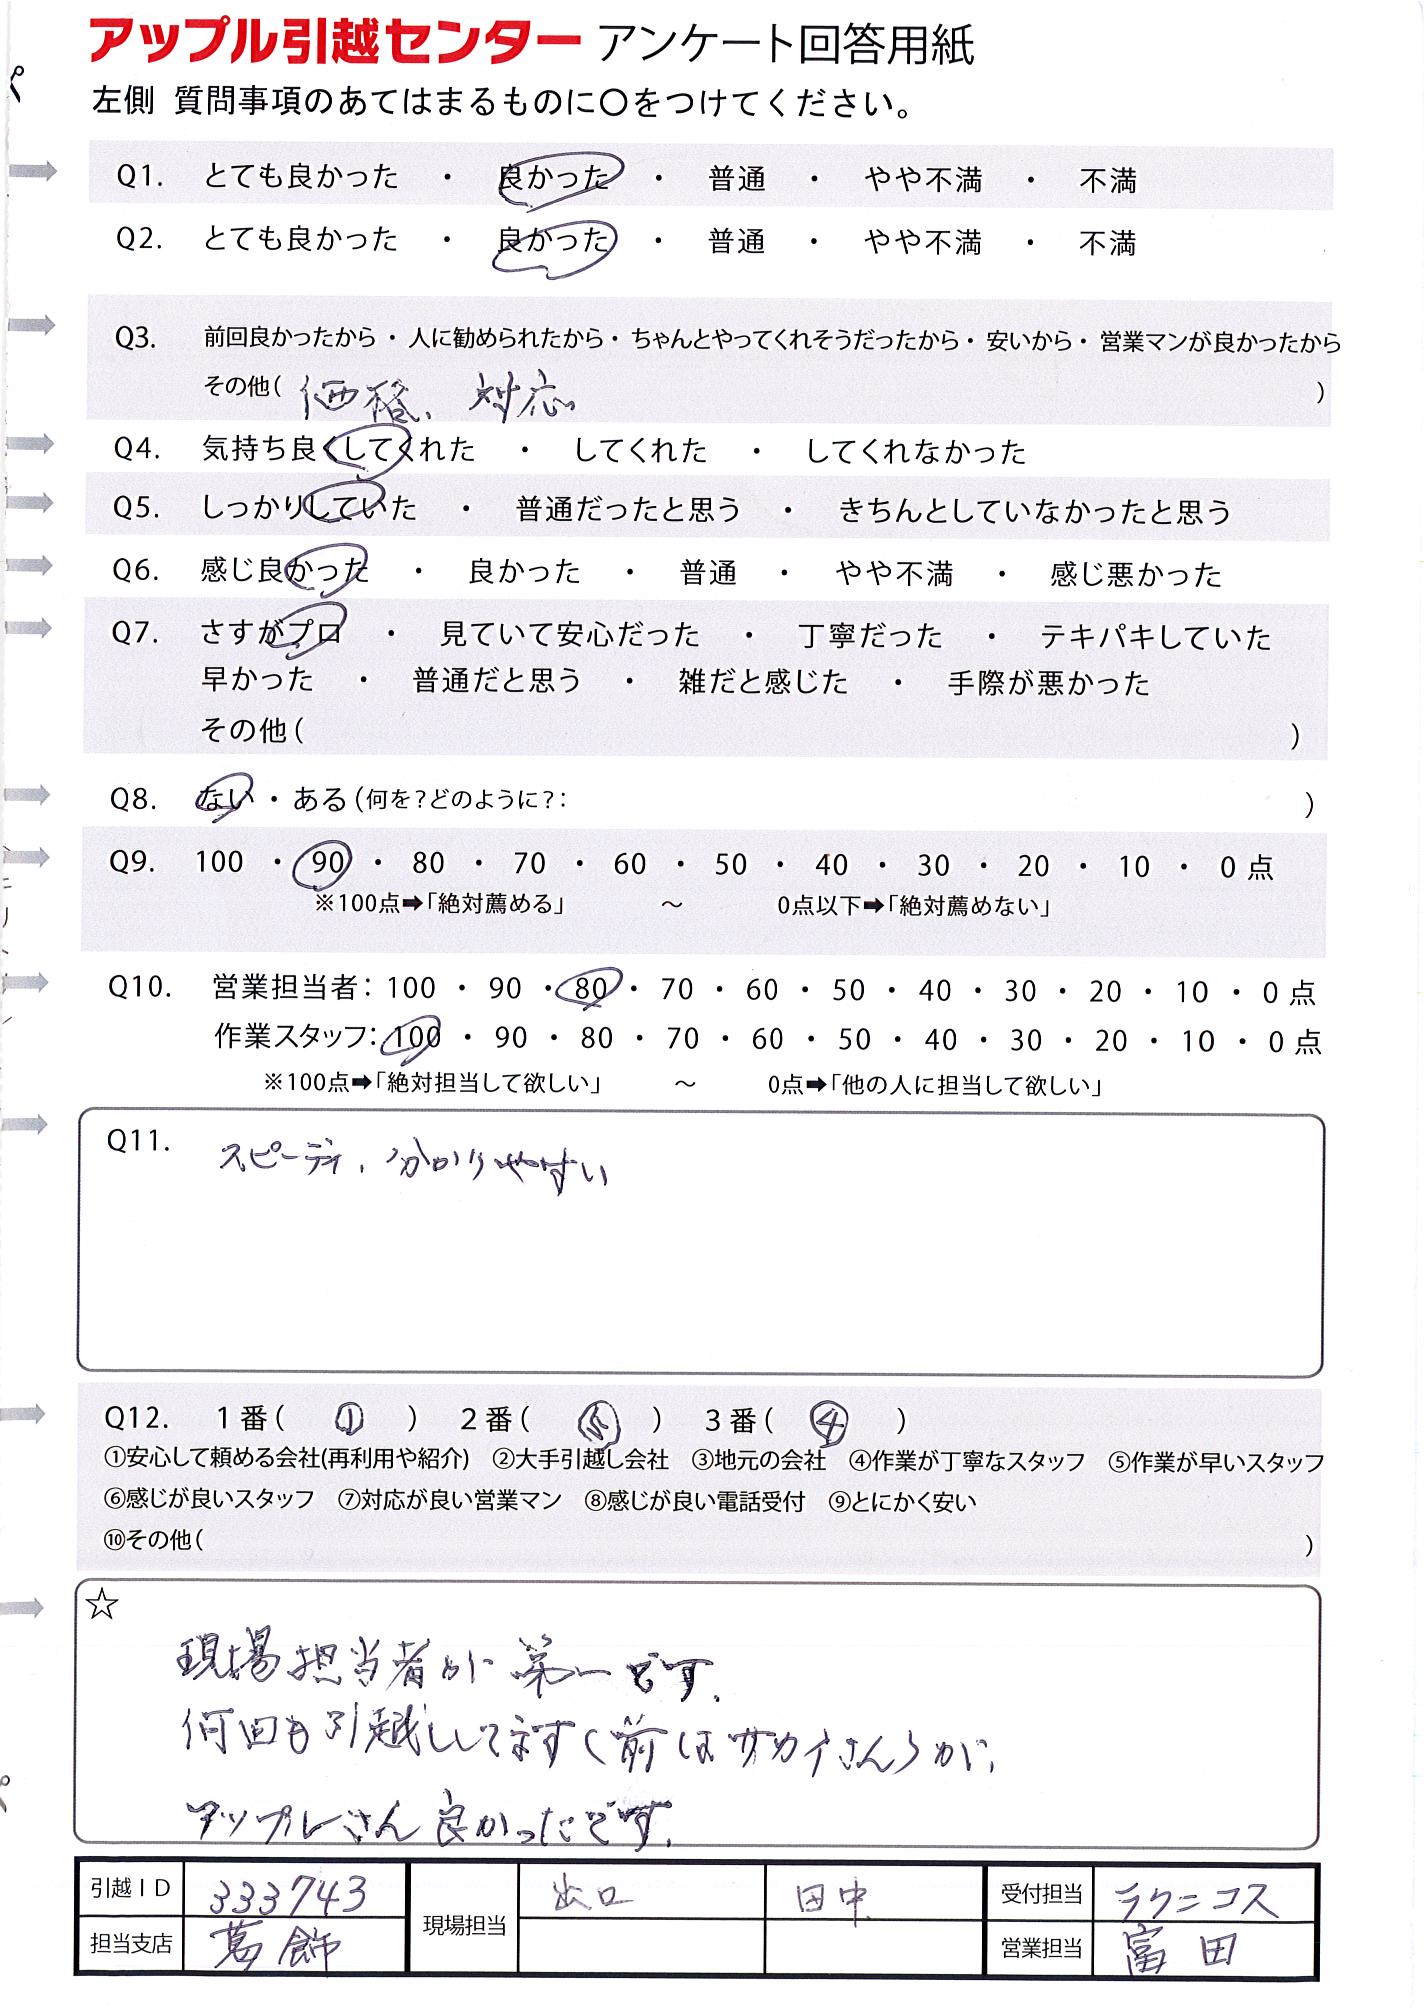 アップル引越センター アンケート回答用紙
左側 質問事項のあてはまるものに〇をつけてください。
Q1. とても良かった ・ 良かった ・ 普通 ・ やや不満 ・ 不満
Q2. とても良かった ・ 良かった ・ 普通 ・ やや不満 ・ 不満
Q3. 前回良かったから・ 人に勧められたから・ ちゃんとやってくれそうだったから・ 安いから・ 営業マンが良かったから
その他( 価格、対応 )
Q4. 気持ち良くしてくれた ・ してくれた ・ してくれなかった
Q5. しっかりしていた ・ 普通だったと思う ・ きちんとしていなかったと思う
Q6. 感じ良かった ・ 良かった ・ 普通 ・ やや不満 ・ 感じ悪かった
Q7. さすがプロ ・ 見ていて安心だった ・ 丁寧だった ・ テキパキしていた
早かった ・ 普通だと思う ・ 雑だと感じた ・ 手際が悪かった
その他( )
Q8. ない・ある(何を?どのように?: )
Q9. 100 ・ 90 ・ 80 ・ 70 ・ 60 ・ 50 ・ 40 ・ 30 ・ 20 ・ 10 ・ 0 点
※100点➡「絶対薦める」 ～ 0点以下➡「絶対薦めない」
Q10. 営業担当者: 100 ・ 90 ・ 80 ・ 70 ・ 60 ・ 50 ・ 40 ・ 30 ・ 20 ・ 10 ・ 0 点
作業スタッフ: 100 ・ 90 ・ 80 ・ 70 ・ 60 ・ 50 ・ 40 ・ 30 ・ 20 ・ 10 ・ 0 点
※100点➡「絶対担当して欲しい」 ～ 0点➡「他の人に担当して欲しい」
Q11. スピーディ、分かりやすい
Q12. 1番( ① ) 2番( ⑤ ) 3番( ④ )
①安心して頼める会社(再利用や紹介) ②大手引越し会社 ③地元の会社 ④作業が丁寧なスタッフ ⑤作業が早いスタッフ
⑥感じが良いスタッフ ⑦対応が良い営業マン ⑧感じが良い電話受付 ⑨とにかく安い
⑩その他( )
☆
現場担当者が第一です。
何回も引越ししてます(前はサカイさん)が、
アップルさん良かったです。
引越ID 333743 現場担当 出口 田中 受付担当 ラクニコス
担当支店 葛飾 営業担当 富田